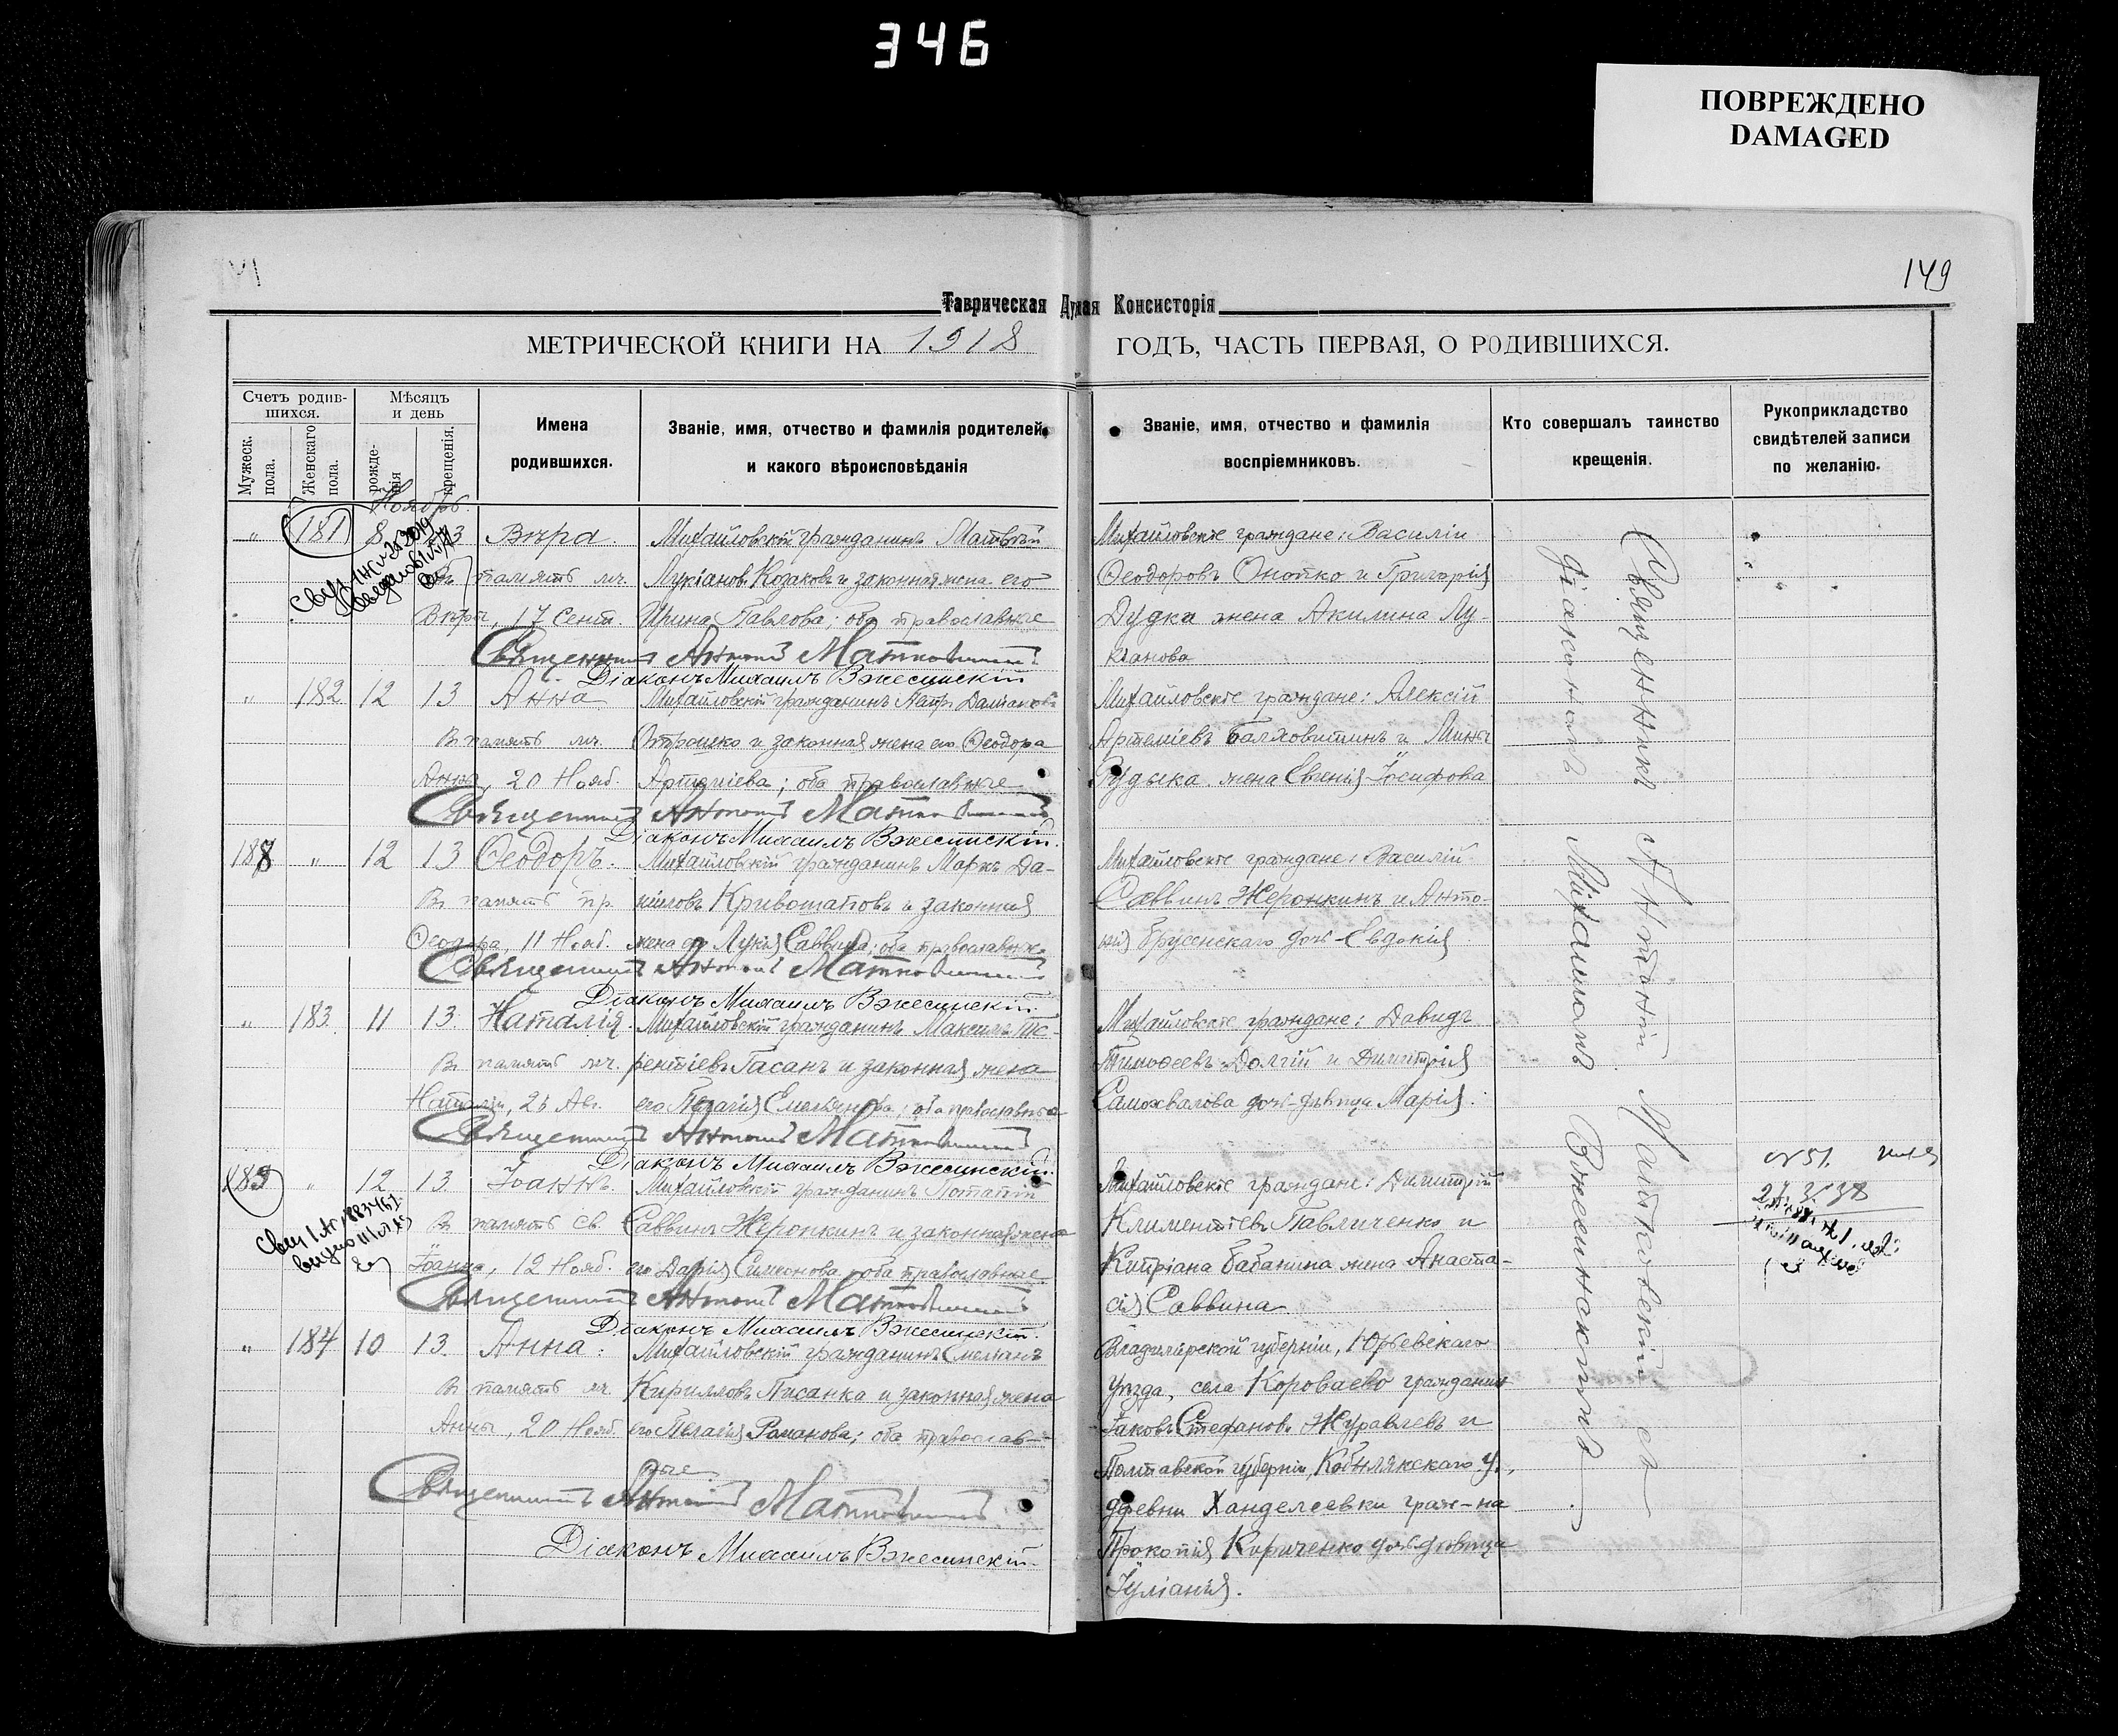 346
ПОВРЕЖДЕНО
DAMAGED
149
Таврическая Духная Консисторія
МЕТРИЧЕСКОЙ КНИГИ НА 1918 ГОДЪ, ЧАСТЬ ПЕРВАЯ, О РОДИВШИХСЯ.
Счетъ родив-
шихся.
Мужеск.
пола.
Женскаго
пола.
Мѣсяцъ
и день
рожде-
нія
крещенія.
Имена
родившихся.
Званіе, имя, отчество и фамилія родителей,
и какого вѣроисповѣданія
Званіе, имя, отчество и фамилія
воспріемниковъ.
Кто совершалъ таинство
крещенія.
Рукоприкладство
свидѣтелей записи
по желанію.
Ноябрь.
" 181 8 13 Вѣра. Михайловскій гражданинъ Матвѣй
Въ память мч. Лукіановъ Козаковъ и законная жена его
Вѣры, 17 Сент. Ирина Павлова; оба православные
Священникъ Антоній Матковскій
Діаконъ Михаилъ Вжесинскій
Михайловскіе граждане: Василій
Ѳеодоровъ Онопко и Григорія
Дудка жена Акилина Лу-
кіанова
" 182 12 13 Анна Михайловскій гражданинъ Петръ
Въ память мч. законная жена его Ѳеодора
Анны, 20 Нояб. Артеміева; оба православные
Священникъ Антоній Матковскій
Діаконъ Михаилъ Вжесинскій.
Михайловскіе граждане: Алексій
Артеміевъ и Мины
Рудыка жена Евгенія Іосифова
188 " 12 13 Ѳеодоръ. Михайловскій гражданинъ Маркъ Да-
Въ память пр. ніиловъ Кривошаповъ и законная
Ѳеодора, 11 Нояб. жена его Лукія Саввина; оба православные
Священникъ Антоній Матковскій
Діаконъ Михаилъ Вжесинскій.
Михайловскіе граждане: Василій
Саввинъ Жеронкинъ и Анто-
нія Брусенскаго дочь Евдокія
" 183 11 13 Наталія. Михайловскій гражданинъ Максимъ Те-
Въ память мч. рентіевъ Гасанъ и законная жена
Наталіи, 26 Авг. его Пелагія Емельянова; оба православные
Священникъ Антоній Матковскій
Діаконъ Михаилъ Вжесинскій.
Михайловскіе граждане: Давидъ
Тимоѳеевъ Долгій и Димитрія
Самохвалова дочь-дѣвица Марія.
189 " 12 13 Іоаннъ. Михайловскій гражданинъ Потапій
Въ память св. Саввинъ Жеронкинъ и законная жена
Іоанна, 12 Нояб. его Дарія Симонова, оба православные
Священникъ Антоній Матковскій
Діаконъ Михаилъ Вжесинскій.
Михайловскіе граждане: Димитрій
Климентіевъ Павличенко и
Кипріана Бабанина жена Анаста-
сія Саввина
" 184 10 13 Анна: Михайловскій гражданинъ Емеліанъ
Въ память мч. Кирилловъ Писанка и законная жена
Анны, 20 Нояб. его Пелагія Романова; оба православ-
ные
Священникъ Антоній Матковскій
Діаконъ Михаилъ Вжесинскій
Владимірской губерніи, Юрьевскаго
уѣзда, села Короваево гражданинъ
Іаковъ Стефановъ Журавлевъ и
Полтавской губерніи, Кобылякскаго у.,
деревни Ханделеевки граж-на
Прокопія Кириченко дочь дѣвица
Іуліанія.
Священникъ Антоній Матковскій съ
діакономъ Михаиломъ Вжесинскимъ.
№ 51.
27. 3. 38